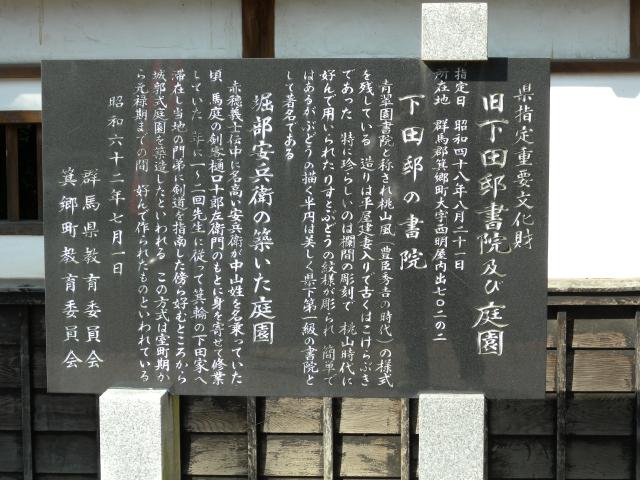 県指定重要文化財
旧下田邸書院及び庭園
指定日 昭和四十八年八月二十一日
所在地 群馬郡箕郷町大字西明屋内出七〇二の二
下田邸の書院
青翠園書院と称され桃山風（豊臣秀吉の時代）の様式
を残している 造りは平屋建妻入りで古くはこけらぶき
であった 特に珍らしいのは欄間の彫刻で 桃山時代に
好んで用いられたりすとぶどうの紋様が彫られ 簡単で
はあるがぶどうの描く半円は美しく県下第一級の書院と
して著名である
堀部安兵衛の築いた庭園
赤穂義士伝中に名高い安兵衛が中山姓を名乗っていた
頃 馬庭の剣客樋口十郎左衛門のもとに身を寄せて修業
していた 年に一〜二回先生に従って箕輪の下田家へ
滞在し当地の門弟に剣道を指南した傍ら好むところから
城郭式庭園を築造したといわれる この方式は室町期か
ら元禄期までの間 好んで作られたものといわれている
昭和六十二年七月一日
群馬県教育委員会
箕郷町教育委員会